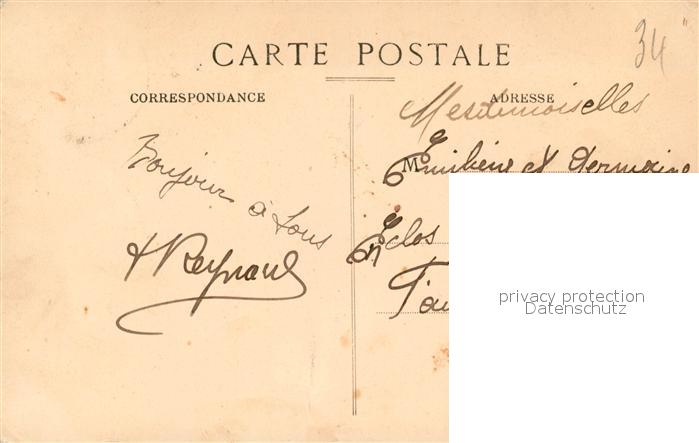 34
CARTE POSTALE
CORRESPONDANCE
ADRESSE
Mesdemoiselles
M Emilienne et Germaine
Bonjour à tous
Reynaud
Eclos
privacy protection
Datenschutz